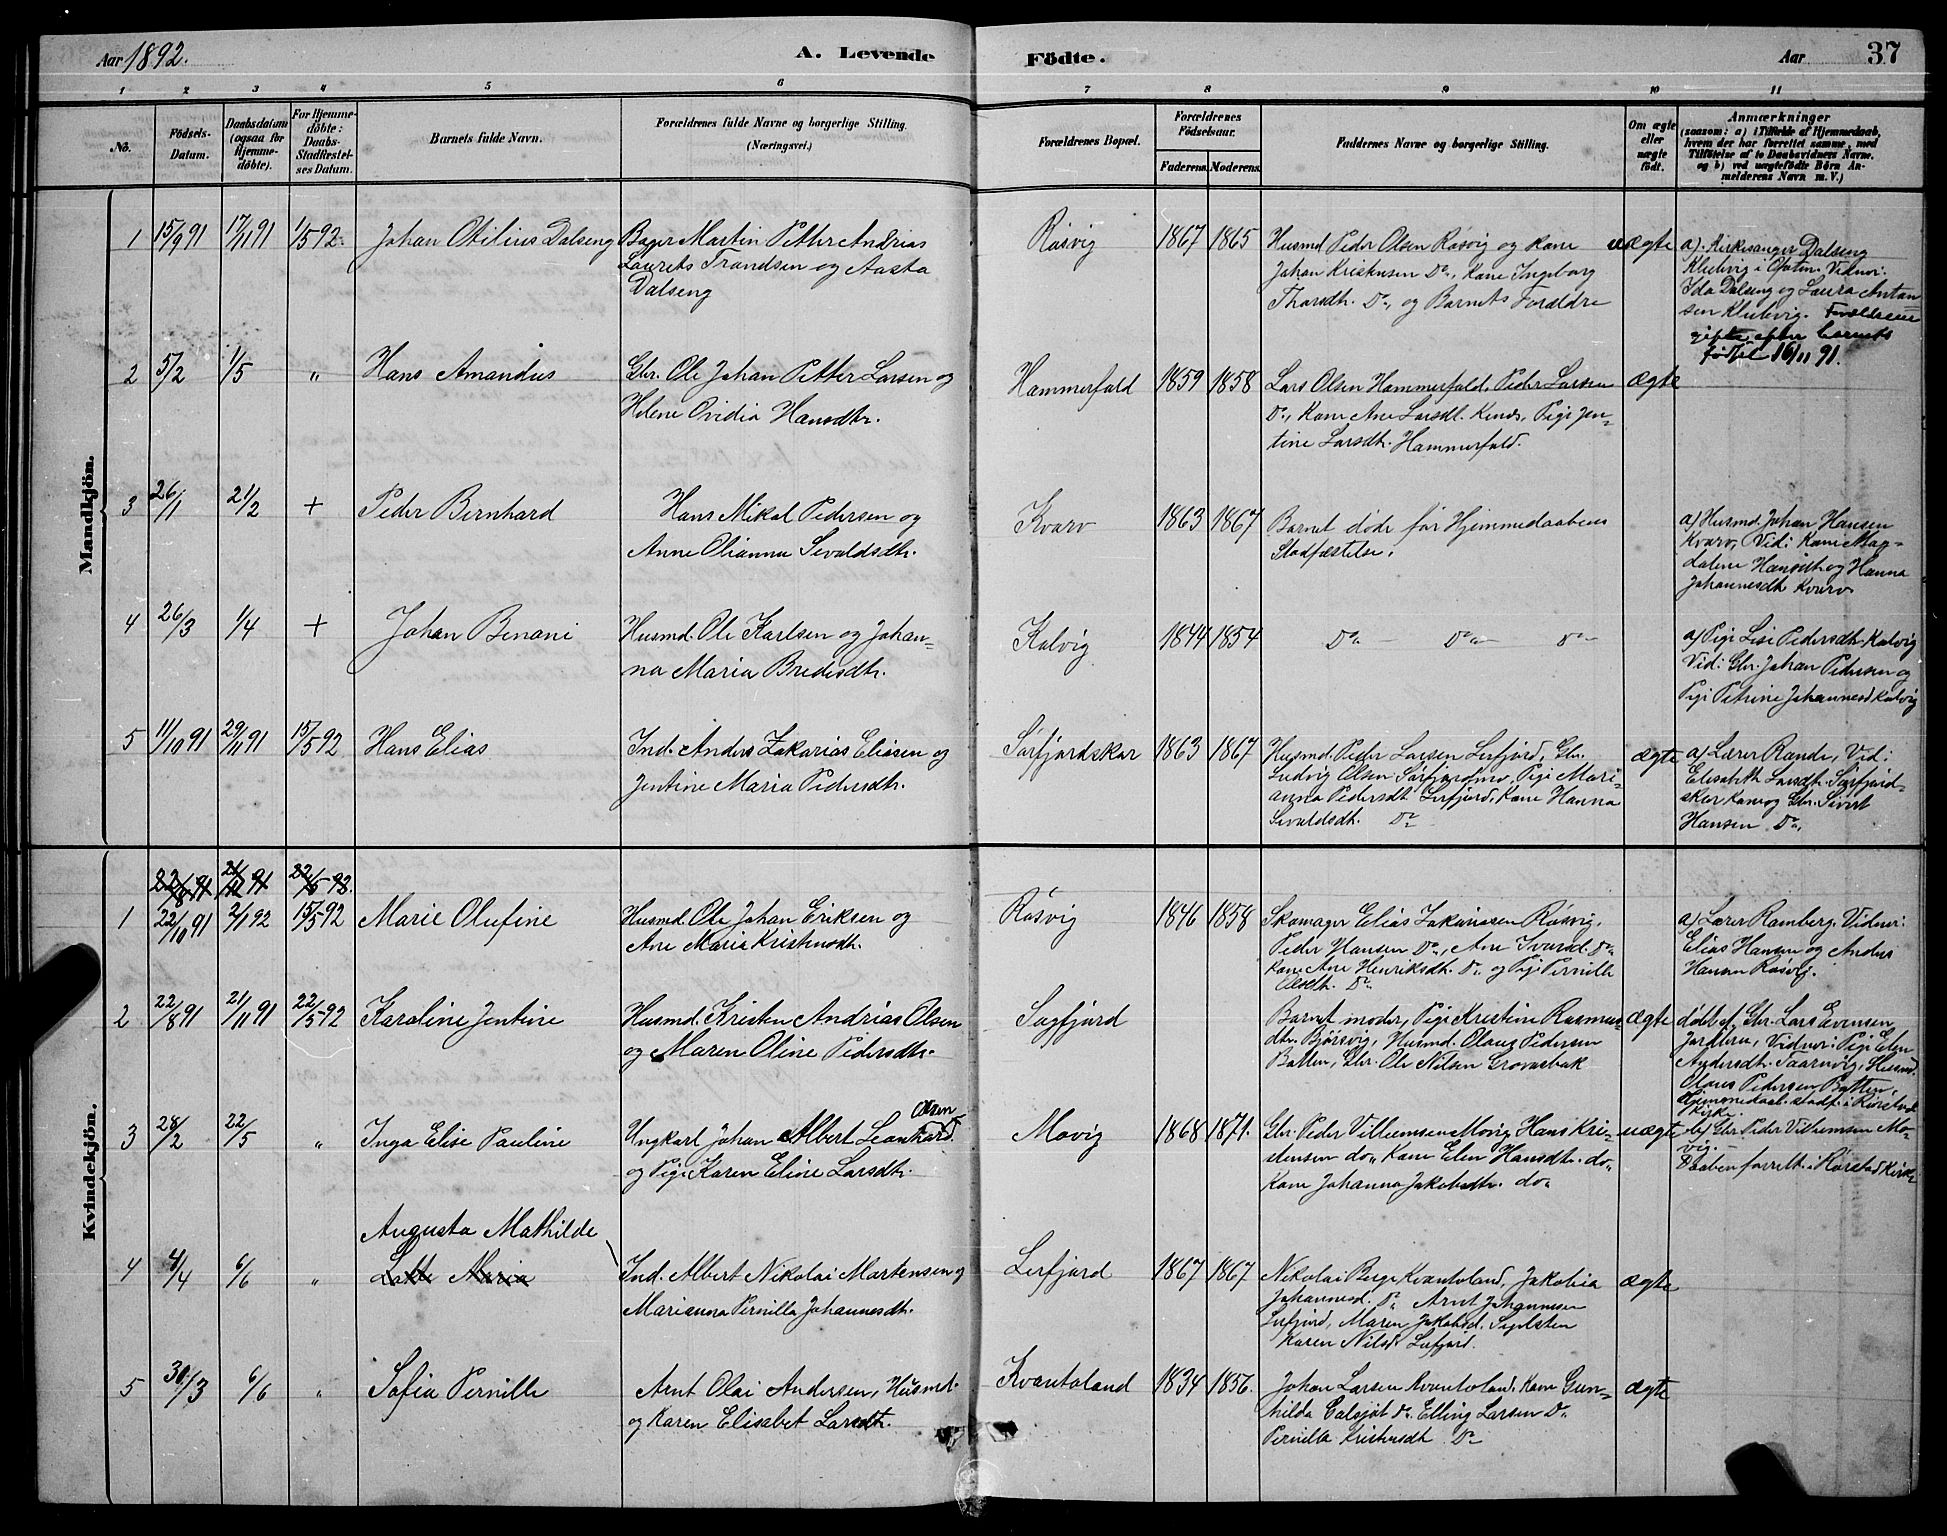 Aar 1892.
A. Levende Födte.
Aar
37
1 2 3 4 5 6 7 8 9 10 11
No.
Födsels-Datum.
Daabsdatum (ogsaa for Hjemmedöbte).
For Hjemme-döbte: Daabs-Stadfæstelses Datum.
Barnets fulde Navn.
Forældrenes fulde Navne og borgerlige Stilling.
(Næringsvei.)
Forældrenes Bopæl.
Forældrenes Födselsaar.
Faderens. Moderens.
Faddernes Navne og borgerlige Stilling.
Om ægte eller uægte födt.
Anmærkninger
(saasom: a) i Tilfælde af Hjemmedaab,
hvem der har forrettet samme, med
Tilföielse af to Daabsvidners Navne,
og b) ved uægtefödte Börn An-
melderens Navn m. V.)
Mandkjön.
1 15/9 91 17/11 91 1/5 92. Johan Otilius Dalseng
Bager Martin Petter Andrias
Laurets Trondsen og Aasta
Dalseng
Røsvig 1867 1865
Husmd Peder Olsen Røsvig og Kone
Johan Kristensen Do, Kone Ingeborg
Thorsdtr. Do, og Barnets Forældre
uægte
a). Kirkesanger Dalseng
Klubvig i Ofoten. Vidner:
Ida Dalseng og Laura Antan
sen Klubvig. Forældrene
gifte efter barnets
fødsel 16/11 91.
2 5/2 1/5 " Hans Amandus
Gbr. Ole Johan Petter Larsen og
Helene Ovidia Hansdtr.
Hammerfald 1859 1858
Lars Olsen Hammerfald. Peder Larsen
Do, Kone Ane Larsdt. Kines, Pige Jen-
tine Larsdtr. Hammerfald.
ægte
3 26/1 21/2 + Peder Bernhard
Hans Mikal Pedersen og
Anne Olianna Sevaldsdtr.
Kvarv 1863 1867
Barnet døde før Hjemmedaabens
Stadfæstelse.
a) Husmd. Johan Hansen
Kvarv, Vid: Kone Mag-
dalene Hansdtr og Hanna
Johannesdtr Kvarv
4 26/3 1/4 + Johan Benoni
Husmd. Ole Karlsen og Johan-
na Maria Bredesdtr.
Kalvig 1844 1854
Do Do Do
a) Pige Lise Pedersdtr. Kalvig
Vid: Gbr. Johan Pedersen og
Pige Petrine Johannesd Kalvig
5 11/10 91 29/11 91 15/5 92 Hans Elias
Ind. Anders Zakarias Eliasen og
Jentine Maria Pedersdtr.
Sørfjordskar 1863 1867
Husmd. Peder Larsen Lerfjord, Gbr.
Ludvig Olsen Sørfjordmo, Pige Mari-
anna Pedersdt Lerfjord, Kone Hanna
Sevaldsdt. Do
ægte
a) Lærer Rande, Vid:
Elisabeth Larsdtr. Sørfjord-
skar Kone og Gbr. Sivert
Hansen Do,
Kvindekjön.
22/8 91 21/11 91 22/5 92.
1 22/10 91 2/1 92 15/5 92 Marie Olufine
Husmd. Ole Johan Eriksen og
Ane Maria Kristensdtr.
Røsvig 1846 1858
Skomager Elias Zakariasen Røsvig.
Peder Hansen Do, Ane Ivarsd. Do
Kone Ane Henriksdtr. Do og Pige Pernilla
Olsdtr. Do
a) Lærer Ramberg. Vidner:
Elias Hansen og Anders
Hansen Røsvig.
2 22/8 91 21/11 91 22/5 92 Karoline Jentine
Husmd. Kristen Andrias Olsen
og Maren Oline Pedersdtr.
Sagfjord
Barnet moder, Pige Kristine Rasmus-
dtr. Bjørsvig, Husmd. Olaus Pedersen
Botten, Gbr. Ole Nilsen Grovasbak
ægte
døbt af Gbr. Lars Evensen
Vidner: Pige Elen
Andersdtr. Taarnvig, Husmd.
Olaus Pedersen Botten,
Hjemmedaab. stadf. i
Kirke.
3 28/2 22/5 " Inga Elise Pauline
Ungkarl Johan Albert Leonhard Olsen
og Pige Karen Eline Larsdtr.
Movig 1868 1871.
Gbr. Peder Villumsen Movig, Hans Kri-
stensen do, Kone Elen Hansdtr. do,
Kone Johanna Jakobsdtr. do,
uægte
b) Gbr. Peder Villumsen Mo-
vig.
Daaben forrett. i Kirke
4 4/4 6/6 " Augusta Mathilde
Lotte Maria
Ind. Albert Nikolai Martensen og
Marianna Pernilla Johannesdtr.
Lerfjord 1867 1867
Nikolai Berge Kvantoland, Jakobia
Johannesd. Do Arnt Johannesen
Lerfjord, Maren Jakobsd.
Karen Nilsd Lerfjord.
ægte
5 30/3 6/6 " Sofia Pernille
Arnt Olai Andersen, Husmd.
og Karen Elisabet Larsdtr.
Kvantoland 1834 1856.
Johan Larsen Kvantoland, Kone Gun-
hilda Do, Elling Larsen Do
Pernilla Kristensdtr Do
ægte